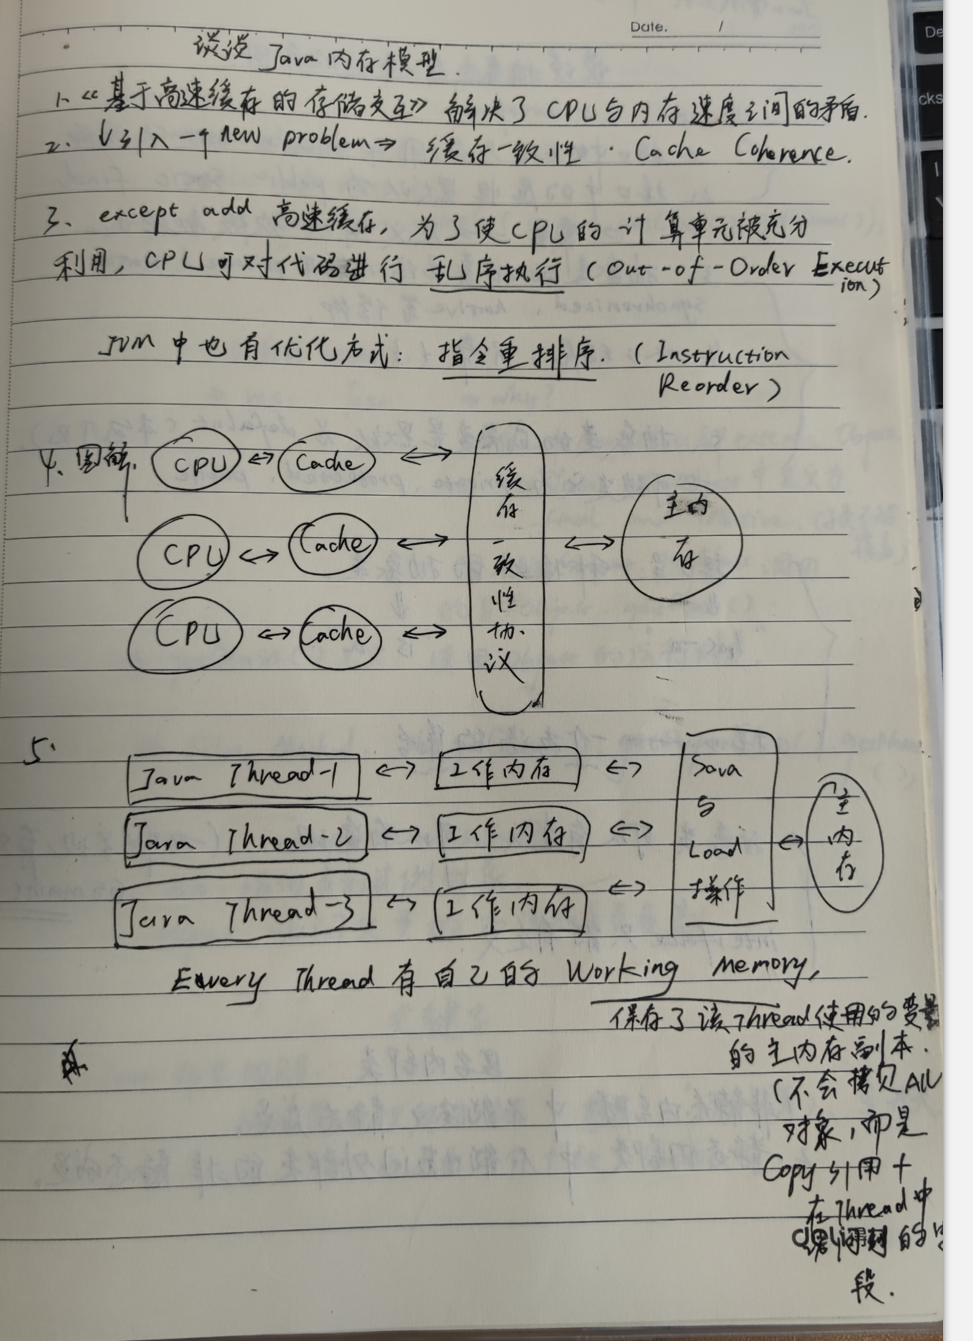 Date. /
谈谈Java内存模型.
1、《基于高速缓存的存储交互》解决了CPU与内存速度之间的矛盾.
2、↓引入一个new problem→ 缓存一致性 · Cache Coherence.
3、except add 高速缓存, 为了使CPU的计算单元被充分
利用, CPU可对代码进行 乱序执行 (Out-of-Order Execut
ion)
JVM中也有优化方式: 指令重排序. (Instruction
Reorder)
4、图解. CPU ↔ Cache ↔
CPU ↔ Cache ↔
CPU ↔ Cache ↔
缓存一致性协议
↔ 主内存
5.
Java Thread-1 ↔ 工作内存 ↔
Java Thread-2 ↔ 工作内存 ↔
Java Thread-3 ↔ 工作内存 ↔
Sava
与
Load
操作
↔ 主内存
Every Thread 有自己的 Working Memory,
保存了该Thread使用的变量
的主内存副本.
(不会拷贝All
对象, 而是
Copy引用+
在Thread中
的
段.
deli
De
cks